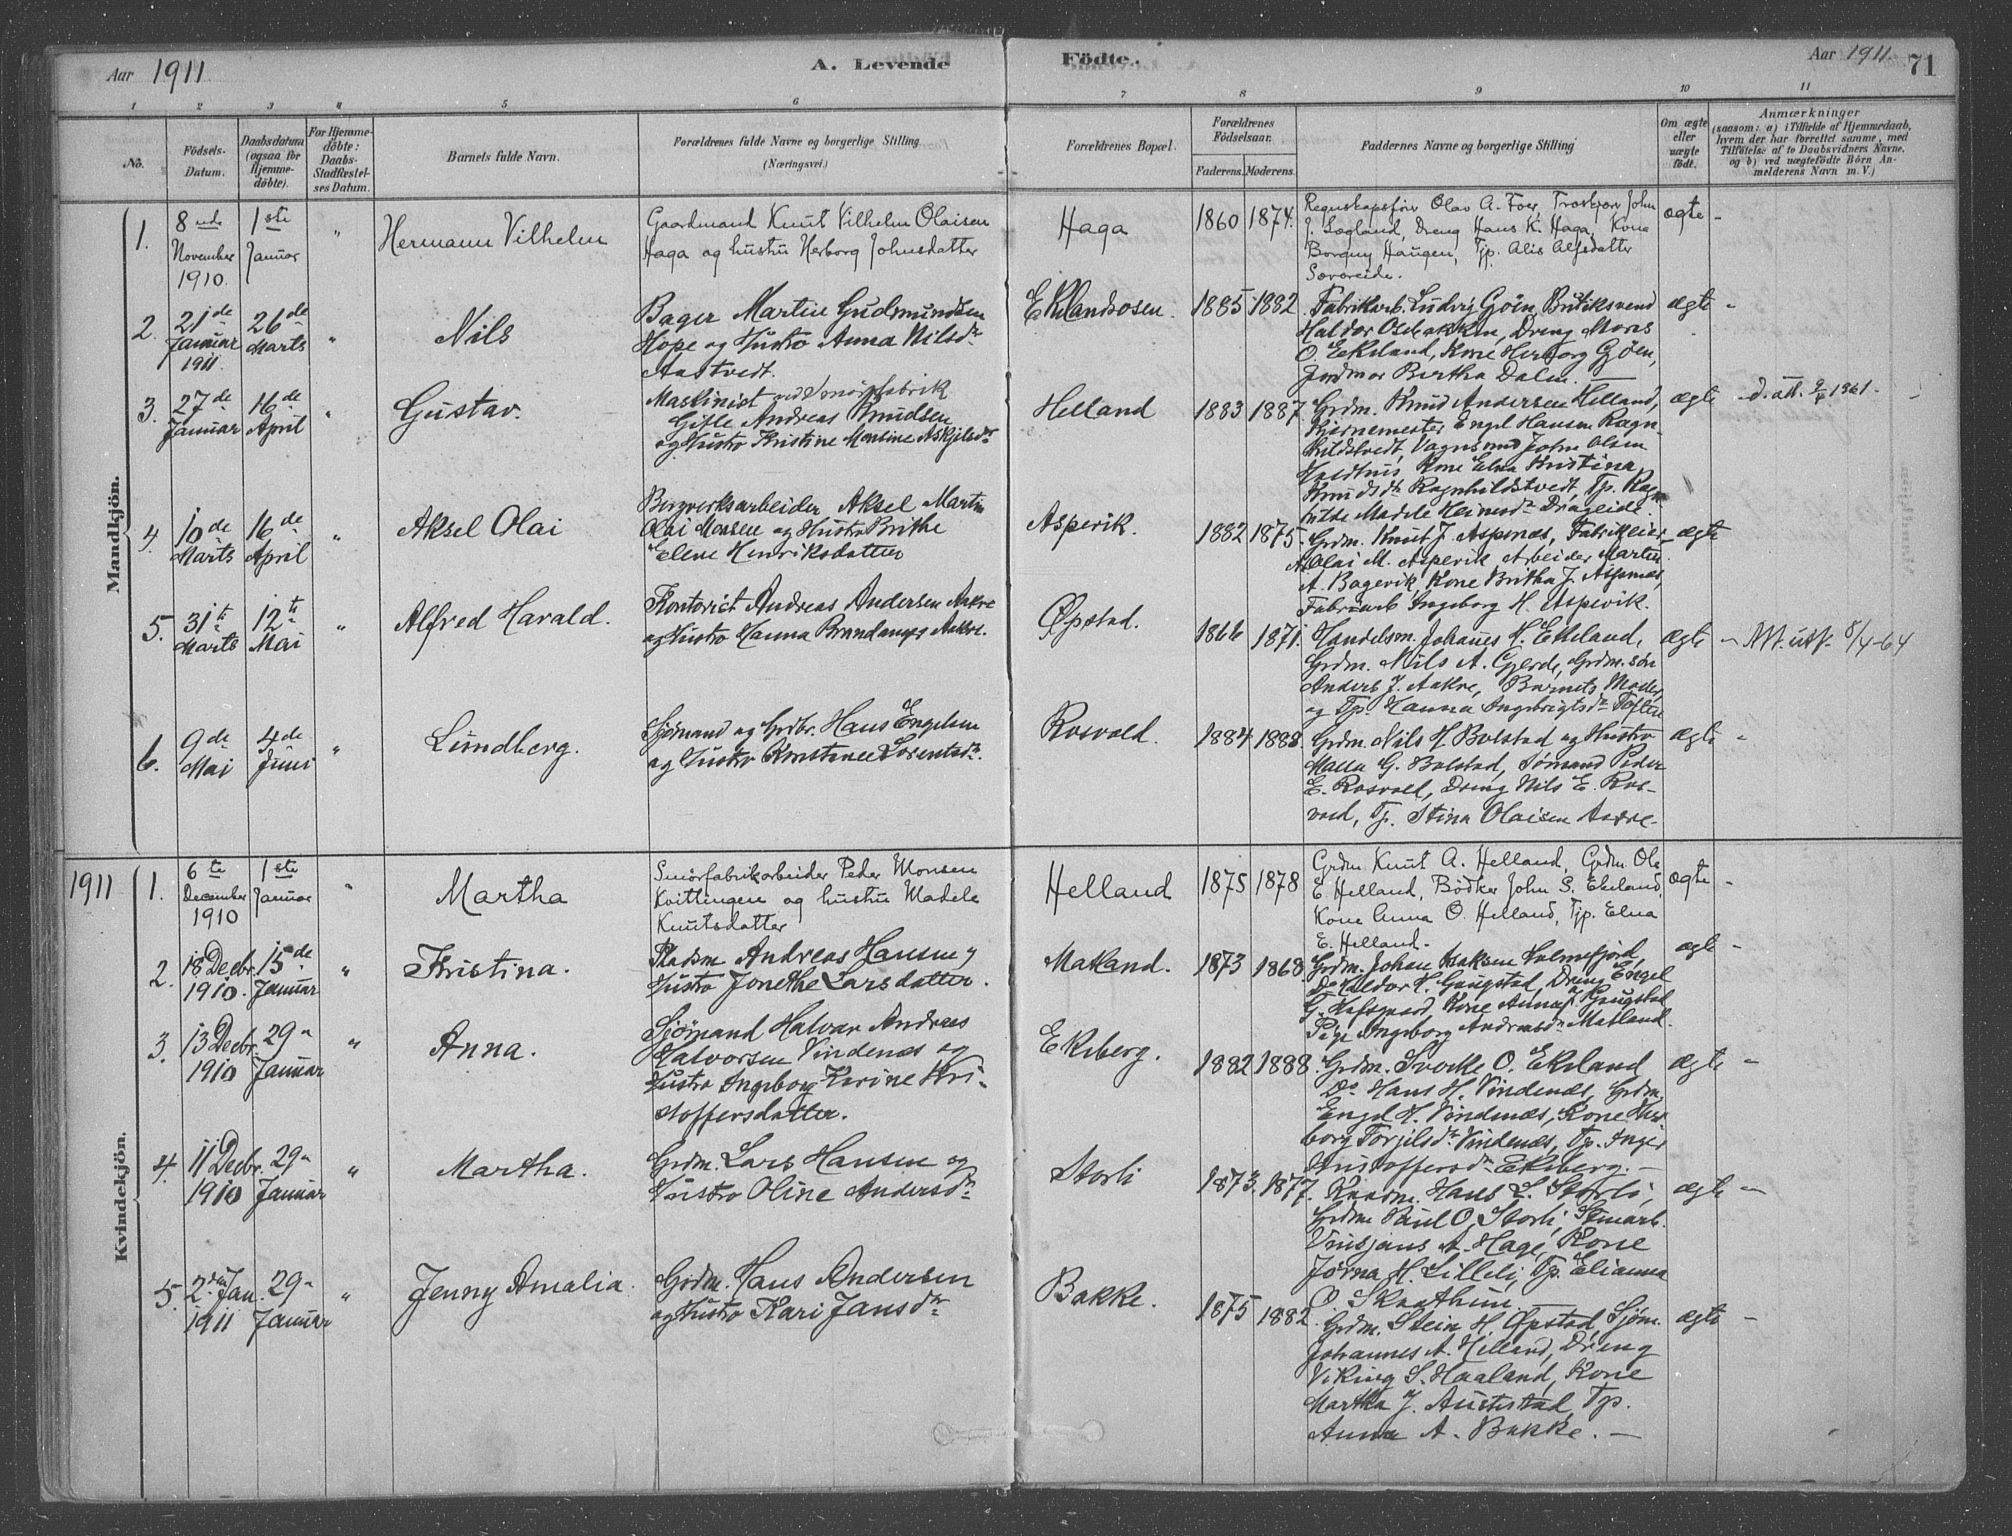 Aar 1911 A. Levende Födte. Aar 1911. 71
1 2 3 " 5 6 7 8 9 10 11
No. Födsels-Datum. Daabsdatum (ogsaa for Hjemme-döbte). For Hjemme-döbte: Daabs-Stadfæstel-ses Datum. Barnets fulde Navn. Forældrenes fulde Navne og borgerlige Stilling (Næringsvei.) Forældrenes Bopæl. Forældrenes Födselsaar. Faderens. Moderens. Faddernes Navne og borgerlige Stilling Om ægte eller uægte födt. Anmærkninger (saasom: a) i Tilfælde af Hjemmedaab, hvem der har forrettet samme, med Tilföielse af to Daabsvidners Navne, og b) ved uægtefödte Börn An-melderens Navn m. V.)
Mandkjön.
1. 8 November 1910. 1ste Januar " Hermann Vilhelm
Gaardmand Knut Vilhelm Olaisen
Haga og hustru Herborg Johnsdatter
Haga 1860 1874.
Regnskapsfører Olav A. Foer, John
J. Lægland, Dreng Hans K. Haga, Kone
Borguy Haugen, Tjp. Alis Alfsdatter
Sævareide.
ægte -
2. 21de Januar 1911. 26de Marts " Nils
Bager Martin Gudmundsen
Hope og Hustro Anna Nilsdr
Aastvedt.
Ekelandsosen. 1885 1882
Fabrikarb. Ludvig Gjøen, Butiksvend
Haldor Osebakken, Dreng Mons
O. Ekeland, Kone Herborg Gjøen,
Jordmor Bertha Dalen.
ægte -
3. 27de Januar 16de April " Gustav.
Maskinist ved Smørfabrik
Gitle Andreas Knudsen
og Hustro Kristine Montine Askjelsdr
Helland 1883 1887
Grdm. Knud Andersen Helland,
Kjernemester Engel Hansen Ragn-
hildstvedt, Vognsmand John Olsen
Holdhus, Kone Elna Kristina
Knudsdr Ragnhildstvedt, Tp. Ragn-
hilde Madele Heinesdr Drageide.
ægte - d. att. 9/4 1961.
4. 10de Marts 16de April " Aksel Olai
Bergverksarbeider Aksel Martin
Olai Monsen og Hustro Brithe
Elene Henriksdatter
Aspevik. 1882 1875.
Grdm. Knut J. Aspenæs, Fabrikeier
Olai M. Aspevik Arbeider Martin
A. Bagevik, Kone Britha J. Aspenæs,
Fabrikarb. Ingeborg H. Aspevik.
ægte
5. 31te Marts 12te Mai " Alfred Harald.
Kontorist Andreas Andersen Aakre
og Hustro Hanna Aakre.
Øpstad. 1866 1871.
Handelsm. Johannes H. Ekeland,
Grdm. Nils A. Gjerde, Grdm. søn
Anders J. Aakre, Barnets Moder,
og Tp. Hanna Ingebrigtsdr Tofte
ægte - N.M. utf. 8/4-64
6. 9de Mai 4de Juni " Lundberg.
Sjømand og Grdbr. Hans Engelsen
og Hustro Konstanse Lorentsdr.
Rosvold. 1884 1888.
Grdm. Nils H Bolstad og Hustro
Malla G. Bolstad, Sømand Peder
E. Rosvold, Dreng Nils E. Ros-
vold, Tp. Stina Olaisen Aakre.
ægte -
1911
Kvindekjön.
1. 6te December 1910 1ste Januar " Martha
Smørfabrikarbeider Peder Monsen
Kvittingen og hustru Madele
Knutsdatter
Helland 1875 1878
Grdm Knut A. Helland, Grdm. Ole
E. Helland, Bødker John S. Ekeland,
Kone Anna O. Helland, Tjp. Elna
E. Helland.
ægte -
2. 18 Decbr. 1910. 15de Januar " Kristina.
Pladsm Andreas Hansen og
Hustro Jonethe Larsdatter.
Matland. 1873 1868.
Grdm. Johan Isaksen Holmefjord,
Do Haldor H. Gaugstad, Dreng Engel
G. Hafsgaard, Kone Anna Gaugstad
Pige Ingeborg Andreasdr Matland.
ægte -
3. 13 Decbr. 1910 29" Januar " Anna.
Sjømand Halvar Andreas
Halvorsen Vindenæs og
Hustro Ingeborg Karine Kri-
stoffersdatter.
Ekeberg. 1882 1888.
Grdm. O. Ekeland
Do. Hans H. Vindenæs, Grdm.
Engel H. Vindenæs, Kone Her-
borg Torjilsdr Vindenæs, Tp. Inger
Kristoffersdr Ekeberg. -
ægte -
4. 11 Decbr. 1910 29" Januar " Martha.
Grdm. Lars Hansen og
Hustro Oline Andersdr
Storli 1873. 1877.
Kaarm. Hans L. Storli,
Grdm. Paul O. Storli, Stenarb.
Vinsjans A. Hage, Kone
Jørna H. Lilleli, Tp. Elianna
O Skaathun
ægte -
5. 2den Jan. 1911 29" Januar " Jenny Amalia.
Grdm. Hans Andersen
og Hustro Kari Jansdr
Bakke. 1875 1882.
Grdm. Stein H. Øpstad, Sjøm.
Johannes A. Helland, Dreng
Viking S. Haaland, Kone
Martha J. Austestad, Tp.
Anna A. Bakke. -
ægte -